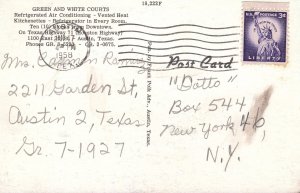 18,222F
GREEN AND WHITE COURTS
Refrigerated Air Conditioning - Vented Heat
Kitchenettes - Refrigerator in Every Room
Ten (10) Blocks from Downtown,
On Texas Highway 71 (Houston Highway)
1100 East Austin, Texas
Phones GR. GR. 2-0675.
1958
Mrs. Ramsey
2211 Garden St,
Austin 2, Texas
Gr. 7-1927
Austin, Texas.
Post Card
U.S. POSTAGE 3¢
LIBERTY
"Dotto"
Box 544
New York 46,
N.Y.